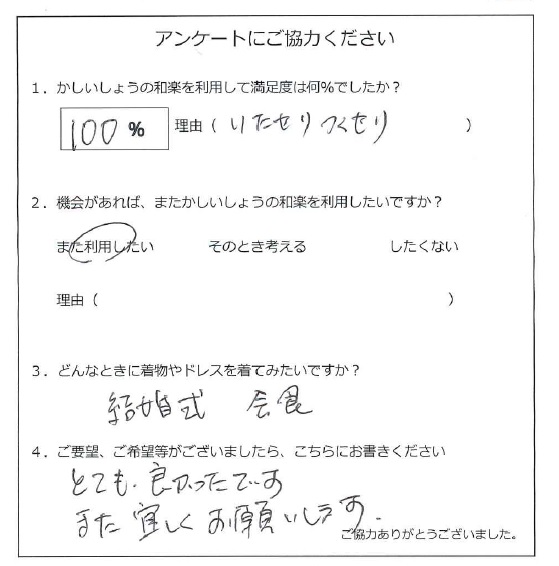 アンケートにご協力ください
1．かしいしょうの和楽を利用して満足度は何%でしたか？
100 % 理由（ いたせり つくせり ）
2．機会があれば、またかしいしょうの和楽を利用したいですか？
また利用したい そのとき考える したくない
理由（ ）
3．どんなときに着物やドレスを着てみたいですか？
結婚式 会食
4．ご要望、ご希望等がございましたら、こちらにお書きください
とても良かったです
また宜しくお願いします.
ご協力ありがとうございました。